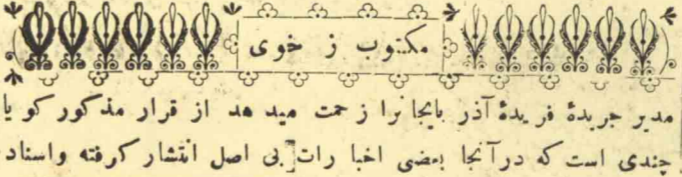 مکتوب ز خوی
مدیر جریدهٔ فریدهٔ آذربایجانرا زحمت میدهد از قرار مذکور کویا
چندی است که درآنجا بعضی اخبارات بی اصل انتشار کرفته واسناد